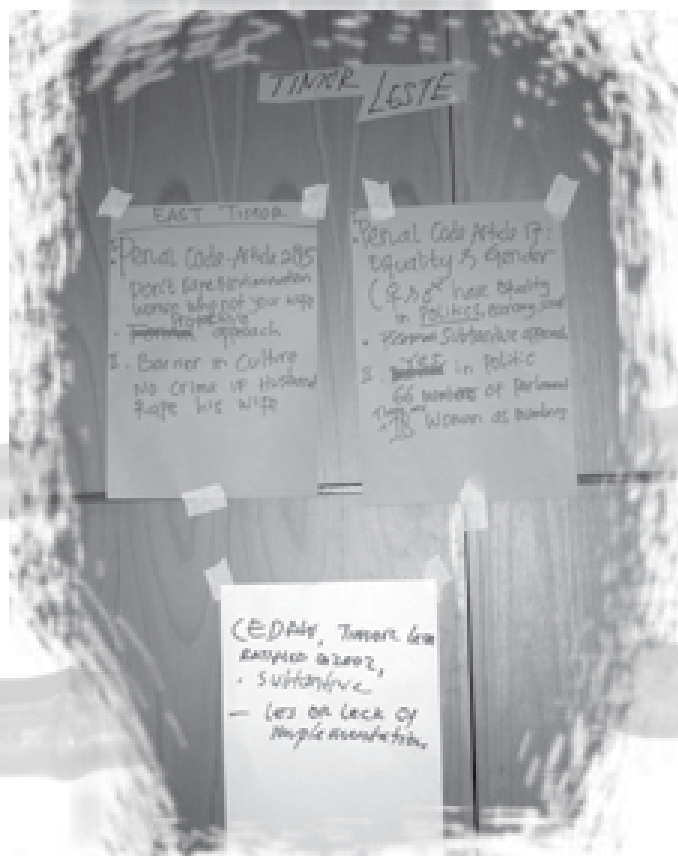 TIMOR LESTE
EAST TIMOR
I. Penal Code-Article 285
Don't Rape & 
women who not your wife
Protective
- Formal approach
II. Barrier in Culture
No Crime if Husband
Rape his wife
I. Penal Code Article 17:
Equality & Gender
(♀ & ♂ have equality
in Politics, economy,
• Formal Substantive approach
II. Yes in Politic
66 members of Parliament
18 Woman as members
CEDAW, Timor Leste
Ratified in 2002,
• Substantive
— Les or Lack of
implementation